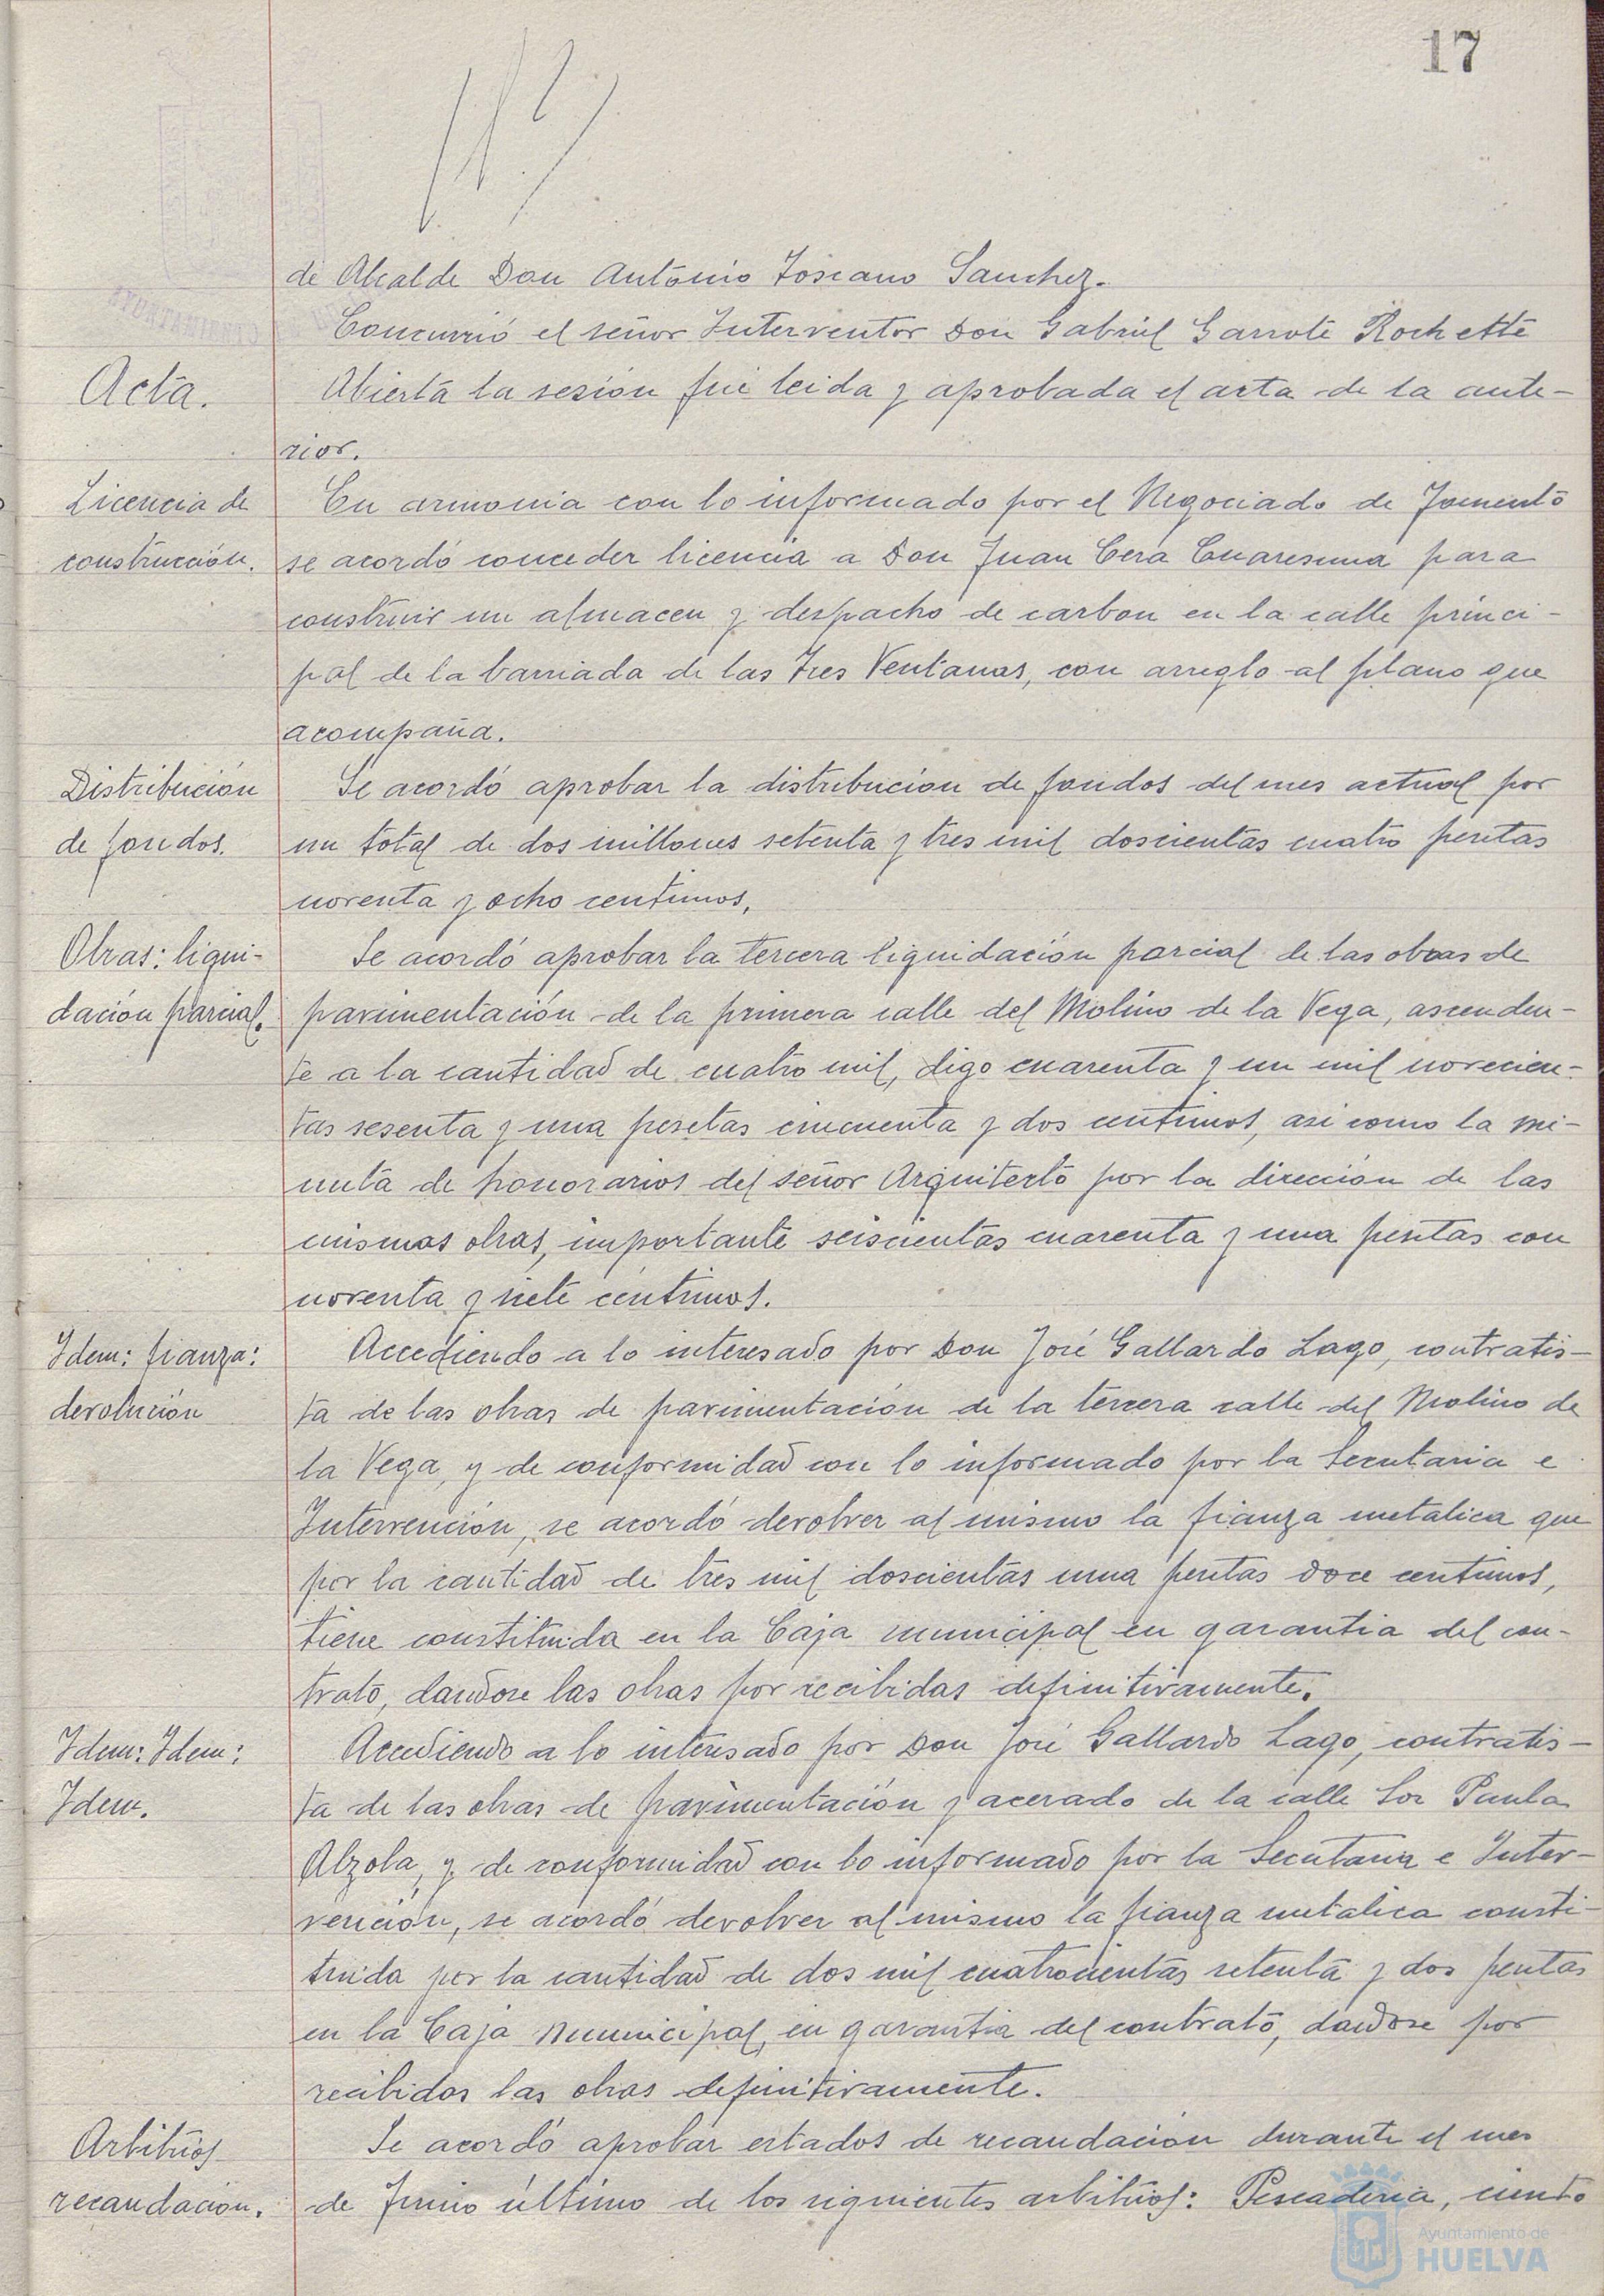 17
de Alcalde Don Antonio Toscano Sanchez.
Concurrió el señor Interventor Don Gabriel Garrote Rochette
Acta.
Abierta la sesión fué leida y aprobada el acta de la ante-
rior.
Licencia de
construcción.
En armonia con lo informado por el Negociado de Fomento
se acordó conceder licencia a Don Juan Cera Cuaresma para
construir un almacen y despacho de carbon en la calle princi-
pal de la barriada de las Tres Ventanas, con arreglo al plano que
acompaña.
Distribución
de fondos.
Se acordó aprobar la distribución de fondos del mes actual por
un total de dos millones setenta y tres mil doscientas cuatro pesetas
noventa y ocho centimos,
Obras: liqui-
dación parcial.
Se acordó aprobar la tercera liquidación parcial de las obras de
pavimentación de la primera calle del Molino de la Vega, ascenden-
te a la cantidad de cuatro mil, digo cuarenta y un mil novecien-
tas sesenta y una pesetas cincuenta y dos centimos, asi como la mi-
nuta de honorarios del señor Arquitecto por la dirección de las
mismas obras, importante seiscientas cuarenta y una pesetas con
noventa y siete centimos.
Idem: fianza:
devolución
Accediendo a lo interesado por Don José Gallardo Lago, contratis-
ta de las obras de pavimentación de la tercera calle del Molino de
la Vega, y de conformidad con lo informado por la Secretaria e
Intervención, se acordó devolver al mismo la fianza metalica que
por la cantidad de tres mil doscientas una pesetas doce centimos,
tiene constituida en la Caja municipal en garantia del con-
trato, dandose las obras por recibidas definitivamente.
Idem: Idem:
Idem.
Accediendo a lo interesado por Don José Gallardo Lago, contratis-
ta de las obras de pavimentación y acerado de la calle Sor Paula
Alzola, y de conformidad con lo informado por la Secretaria e Inter-
vención, se acordó devolver al mismo la fianza metalica consti-
tuida por la cantidad de dos mil cuatrocientas setenta y dos pesetas
en la Caja Municipal, en garantia del contrato, dandose por
recibidos las obras definitivamente.
Arbitrios
recaudación.
Se acordó aprobar estados de recaudación durante el mes
de Junio último de los siguientes arbitrios: Pescaderia, ciento
Ayuntamiento de
HUELVA